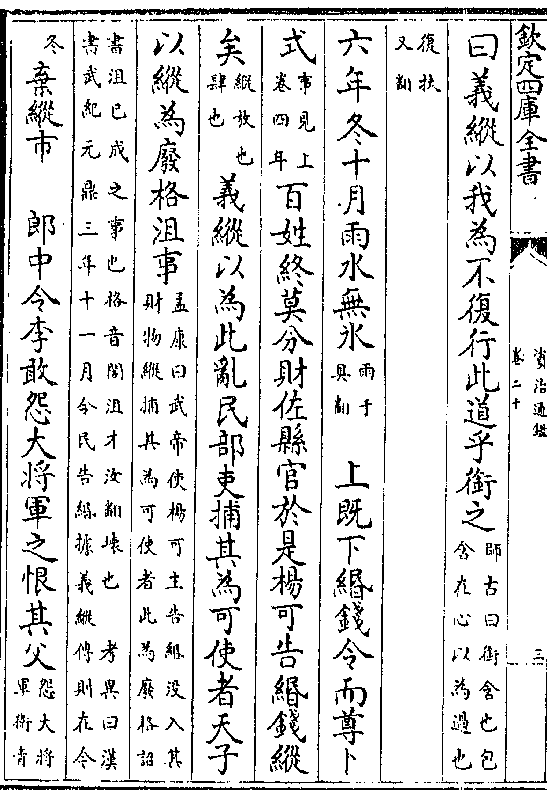 欽定四庫全書
資治通鑑
卷二十
三
曰義縱以我為不復行此道乎銜之師古曰銜含也包含在心以為過也
復扶又翻
六年冬十月雨水無氷雨于具翻　上既下緡錢令而尊卜
式事見上卷四年百姓終莫分財佐縣官於是楊可告緡錢縱
矣縱放也肆也　義縱以為此亂民部吏捕其為可使者天子
以縱為廢格沮事孟康曰武帝使楊可主告緡没入其財物縱捕其為可使者此為廢格詔
書沮已成之事也格音閣沮才汝翻壊也　考異曰漢書武紀元鼎三年十一月令民告緡據義縱傳則在今
冬棄縱市　郎中令李敢怨大將軍之恨其父怨大將軍衛青